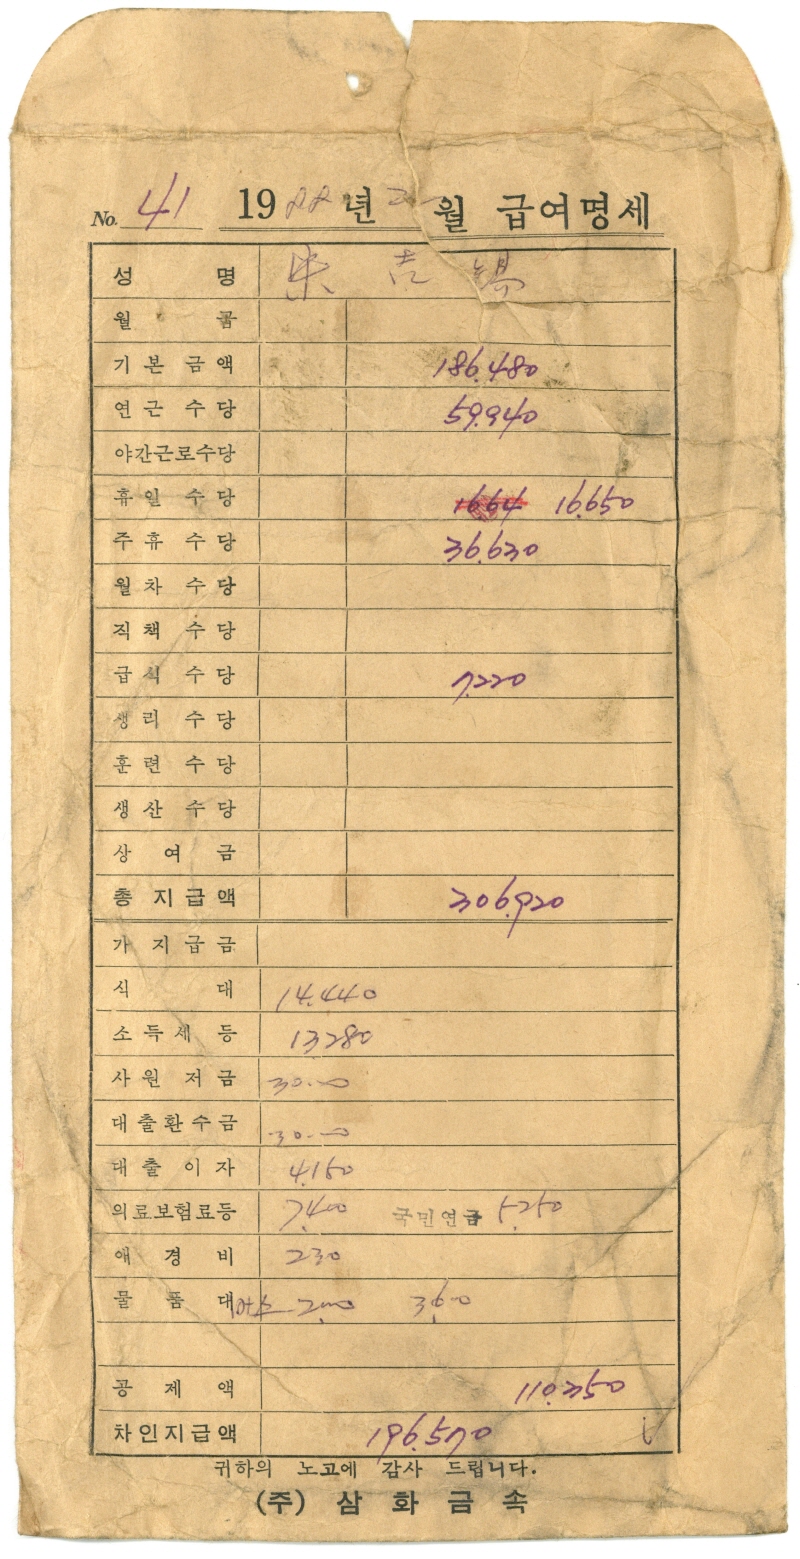 No. 41 1988년 2월 급여명세
성 명 吉
월 품
기본금액 186.480
연근수당 59.940
야간근로수당
휴일수당 1664 16.650
주휴수당 36.630
월차수당
직책수당
급식수당 7.220
생리수당
훈련수당
생산수당
상여금
총지급액 306.920
가지급금
식 대 14.440
소득세등 13.280
사원저금 30.000
대출환수금 30.000
대출이자 4.150
의료보험료등 7.400 국민연금 5.250
애경비 230
물품대 2.000 3.600
공제액 110.350
차인지급액 196.570
귀하의 노고에 감사 드립니다.
(주) 삼화금속